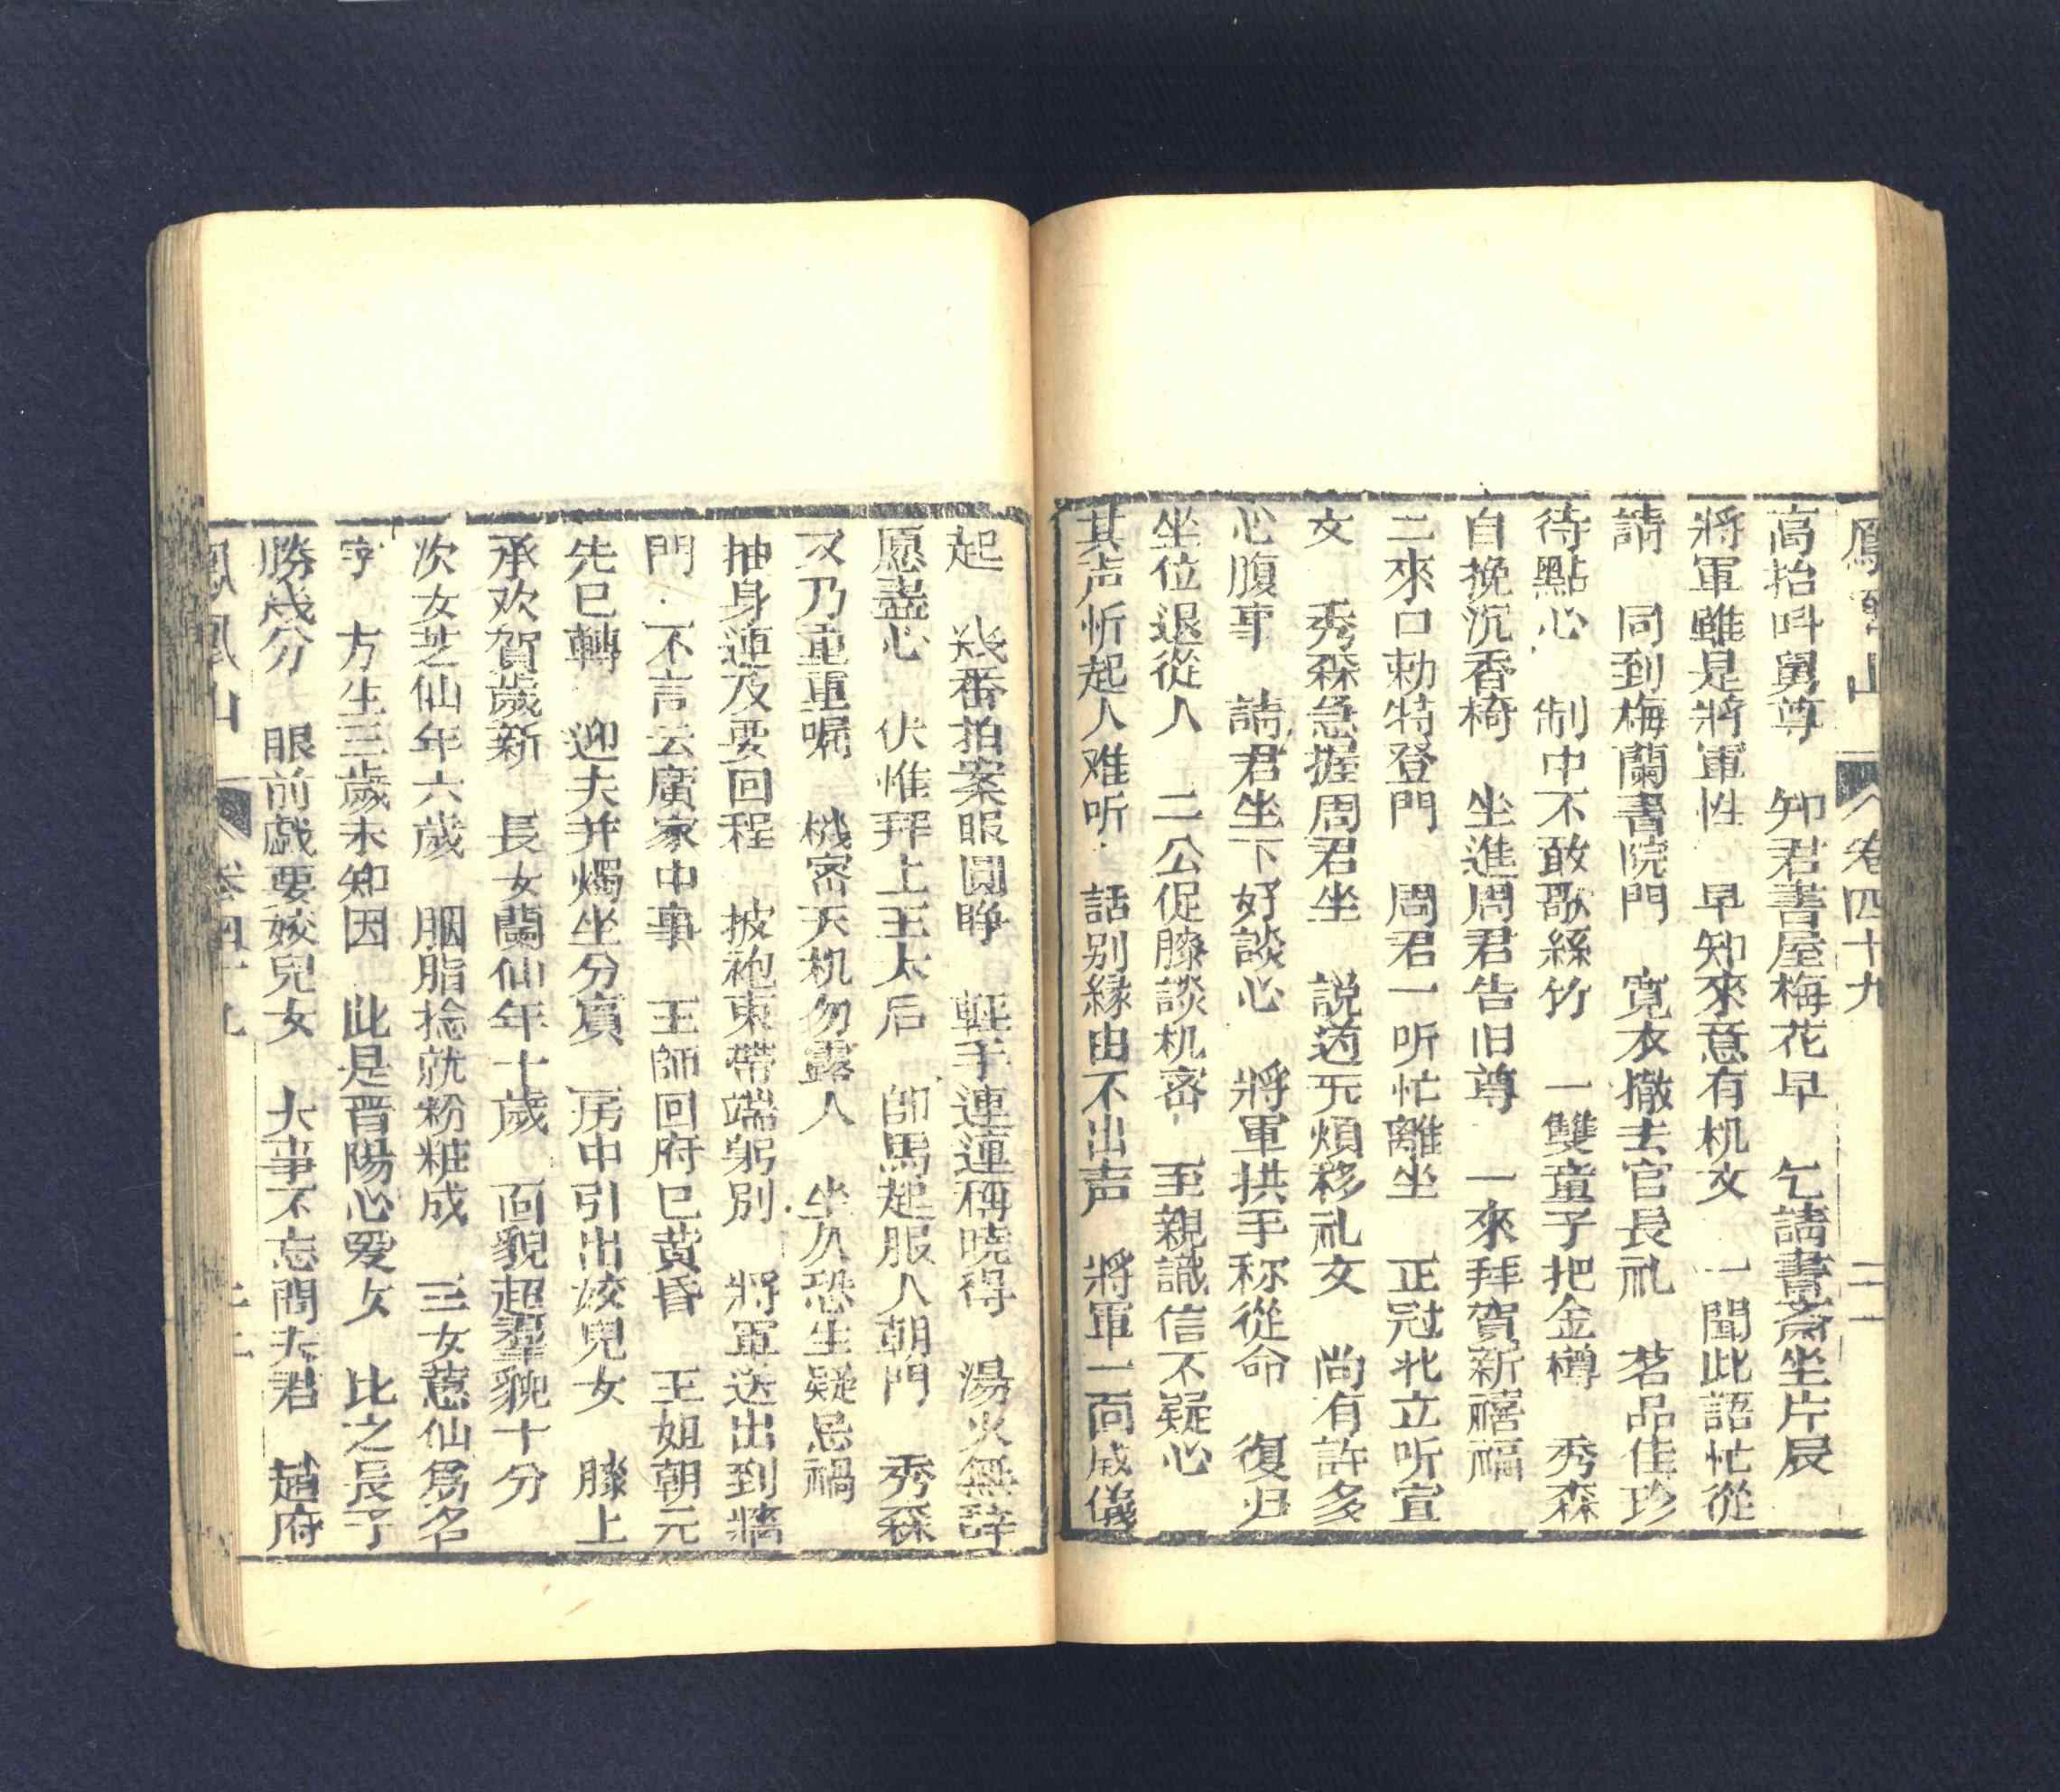 山 卷四十九 二一
高抬呌舅尊 知君書屋梅花早 乞請書斎坐片辰
將軍雖是將軍性 早知來意有机文 一聞此語忙從
請 同到梅蘭書院門 寛衣撒去官長礼 茗品佳珍
待點心 制中不敢歌絲竹 一雙童子把金樽 秀森
自挽沉香椅 坐進周君告旧尊 一來拜賀新禧福
二來口勅特登門 周君一听忙離坐 正冠北立听宣
文 秀森急握周君坐 説道旡煩移礼文 尚有許多
心腹事 請君坐下好談心 將軍拱手称從命 復归
坐位退從人 二公促膝談机密 至親誠信不疑心
其声忻起人难听 話别緣由不出声 將軍一面成儀
起 㡬番拍案眼圓睁 軽手連連稱曉得 湯火無辞
愿盡心 伏惟拜上王太后 師馬起服人朝門 秀森
又乃重重嘱 機密天机勿露人 坐久恐生疑忌禍
抽身連及要回程 披袍束帶端躬别 將軍送出到牆
門 不言云廣家中事 王師回府已黄昏 王姐朝元
先已轉 迎夫并燭坐分賔 房中引出姣兒女 膝上
承欢賀歲新 長女蘭仙年十歲 面貌超羣貌十分
次女芝仙年六歲 胭脂捻就粉粧成 三女蕙仙爲名
字 方生三歲未知因 此是晋陽心愛女 比之長子
勝㡬分 眼前戯耍姣兒女 大事不忘問夫君 趙府
鳳凰山 卷四十九